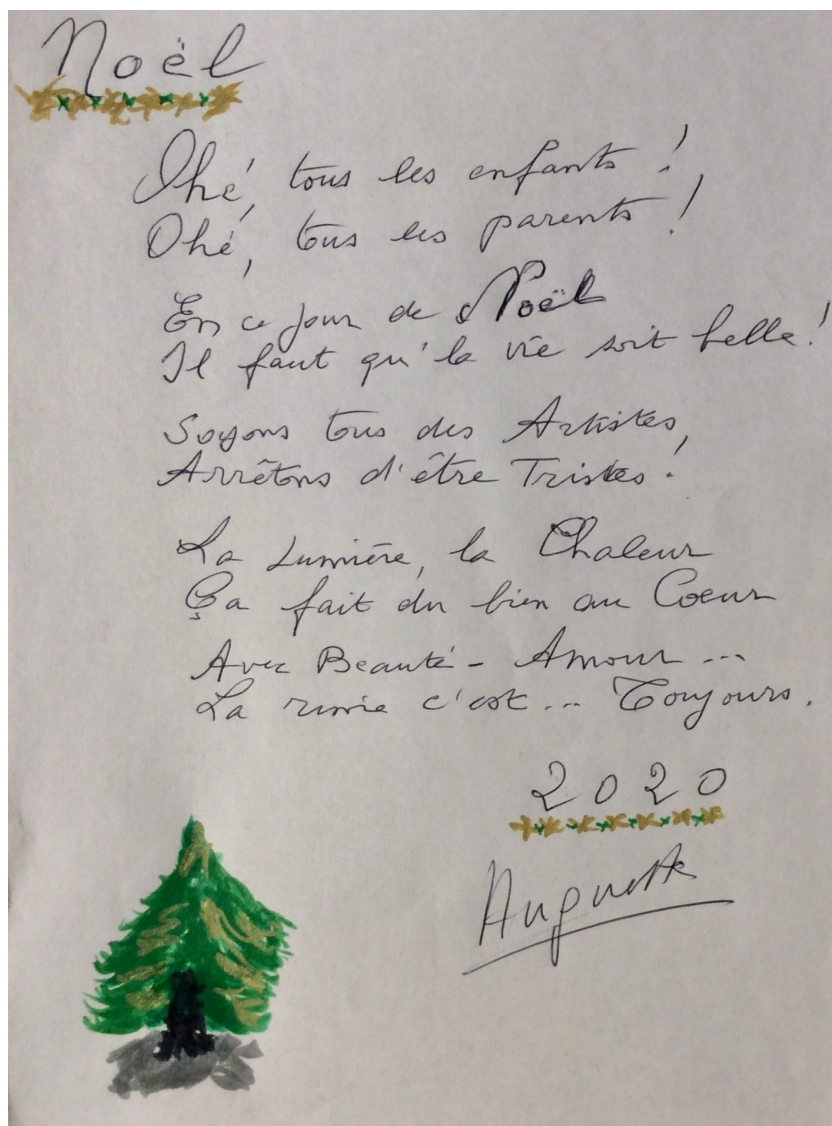 Noël
Ohé, tous les enfants !
Ohé, tous les parents !
En ce jour de Noël
Il faut qu'la vie soit belle !
Soyons tous des Artistes,
Arrêtons d'être Tristes !
La Lumière, la Chaleur
Ça fait du bien au Coeur
Avec Beauté - Amour ...
La rime c'est ... Toujours.
2020
Auguste